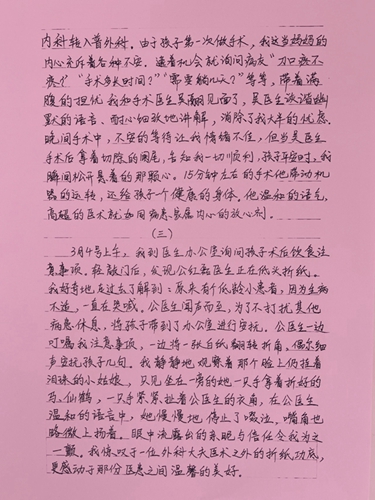 内科转入普外科。由于孩子第一次做手术，我这当妈妈的
内心充斥着各种不安。逮着机会就询问病友"刀口疼不
疼？""手术多长时间？""需要躺几天？"等等，带着满
腹的担忧我和手术医生吴翩见面了，吴医生诙谐幽
默的语言、耐心细致地讲解，消除了我大半的忧虑。
晚间手术中，不安的等待让我惴惴不住，但当吴医生
手术后拿着切除的阑尾，告知我一切顺利，孩子平安时，我
瞬间松开悬着的那颗心。15分钟左右的手术他带动机
器的运转，还给孩子一个健康的身体。他温和的语气，
高磊的医术就如同病患家属内心的放心剂。
(三)
3月4号上午，我到医生办公室询问孩子术后饮食注
意事项。轻敲门后，发现公红磊医生正在低头折纸。
我好奇地走过去了解到：原来有低龄小患者，因为生病
不适，一直在哭喊。公医生闻声而至，为了不打扰其他
病患休息，将孩子带到了办公室进行安抚，公医生一边
叮嘱我注意事项，一边将一张白纸翻转折角，偶尔细
声安抚孩子几句。我静静地观察着那个脸上仍挂着
泪珠的小姑娘，只见坐在一旁的她一只手拿着折好的
马、仙鹤，一只手紧紧拉着公医生的衣角，在公医生
温和的语言中，她慢慢地停止了啜泣，嘴角也
略微上扬着。眼中流露出的亲昵与信任令我为之
一颤。我惊叹于一位外科大夫医术之外的折纸功底，
更感动于那份医患之间温馨的美好。